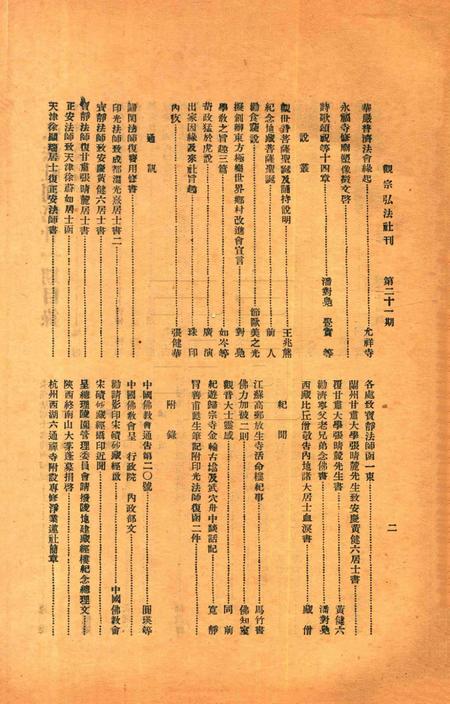 觀宗弘法社刊 第二十一期 二
華嚴普濟法會緣起……尤祥寺
永福寺修廟塑像捐文啓
詩歌頌祝等十四章……潘對鳧 显寶 等
說叢
觀世音菩薩聖誕及誦持說明……王兆熊
紀念地藏菩薩聖誕……前人
勸食齋說……節歐美之光
擬創辦東方極樂世界鄉村改進會宣言……對鳧
學教之旨趣三篇……如岑等
苛政猛於虎說……廣演
出家因緣及來社旨趣……珠印
內疚……張健華
通訊
諦閑法師復寶用修書
印光法師致成都淵光熹居士書二
寶靜法師致安慶黃健六居士書
寶靜法師復甘肅張晴麓居士書
正安法師致天津徐蔚如居士函
天津徐蔚如居士復正安法師書
各處致寶靜法師函一束
蘭州甘肅大學張晴麓先生致安慶黃健六居士書
覆甘肅大學張晴麓先生書……黃健六
勸濟寧父老兄弟念佛書……潘對鳧
西藏比丘僧敬告內地諸大居士血淚書……藏僧
紀聞
江蘇高郵放生寺活命樓紀事……馬竹書
佛力加被二則……佛知室
觀音大士靈感……同前
紀遊歸宗寺金輪古塔及武穴舟中談話記……寬靜
冒善甫甦生筆記附印光法師復函二件
附錄
中國佛敎會通告第二〇號……圓瑛等
中國佛敎會呈 行政院 內政部文
勸請影印宋磧砂藏經啟……中國佛敎會
宋磧砂藏經攝印近聞
呈總理陵園管理委員會請撥陵地建藏經樓紀念總理文
陝西終南山大茅蓬募捐啓
杭州西湖六通禪寺附設專修淨業蓮社簡章